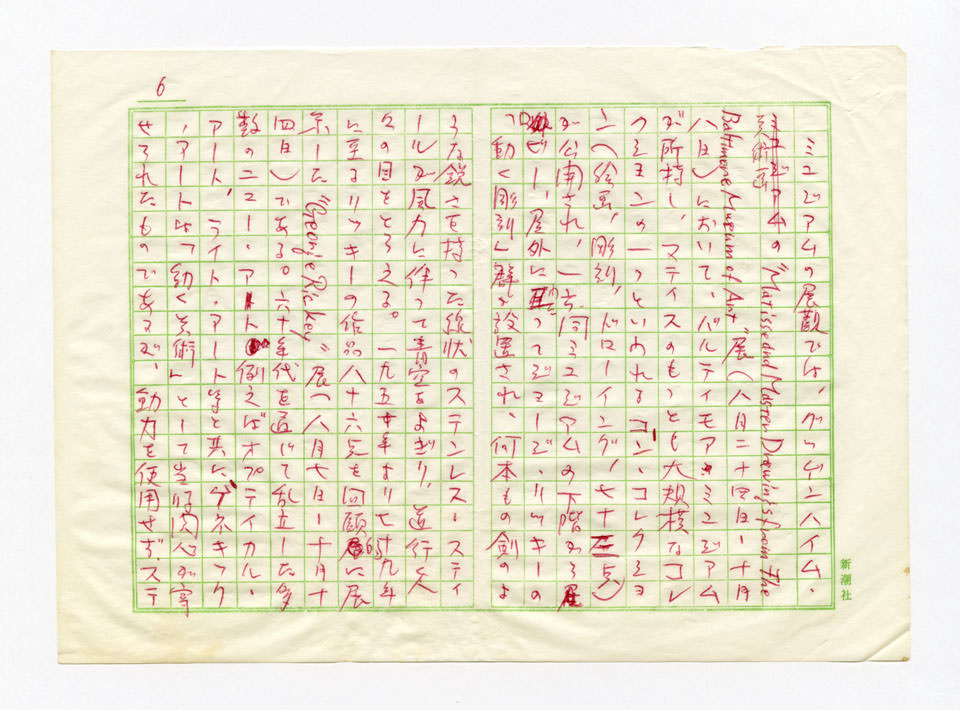 6
ミユゼアムの展観では、グッゲンハイム・
美術舘の "Matisse and Master Drawings from the
Baltimore Museum of Art" 展(八月二十四日－十月
八日)において、バルティモア・ミユゼアム
が所持し、マティスのもっとも大規模なコレ
クションの一つといわれるコーン・コレクショ
ン(絵画、彫刻、ドローイング、七十点)
が公開され、一方、同ミユゼアムの下階から
フロゼー、屋外に つて リッキーの
「動く彫刻」群が設置され、何本もの剣のよ
うな鋭さを持った線状のステンレス・スティ
ールが風力に伴って青空をよぎり、道行く人
々の目をとらえる。一九五十年より七十九年
に至るリッキーの作品八十六点を回顧的に展
示した "George Rickey" 展(八月七日－十月十
四日)である。六十年代を通じて乱立した多
数のニュー・アート 例えばオプティカル・
アート、ライト・アート等と共に、キネティック
・アートは「動く美術」として当時関心が寄
せられたものであるが、動力を使用せず、ステ
新潮社